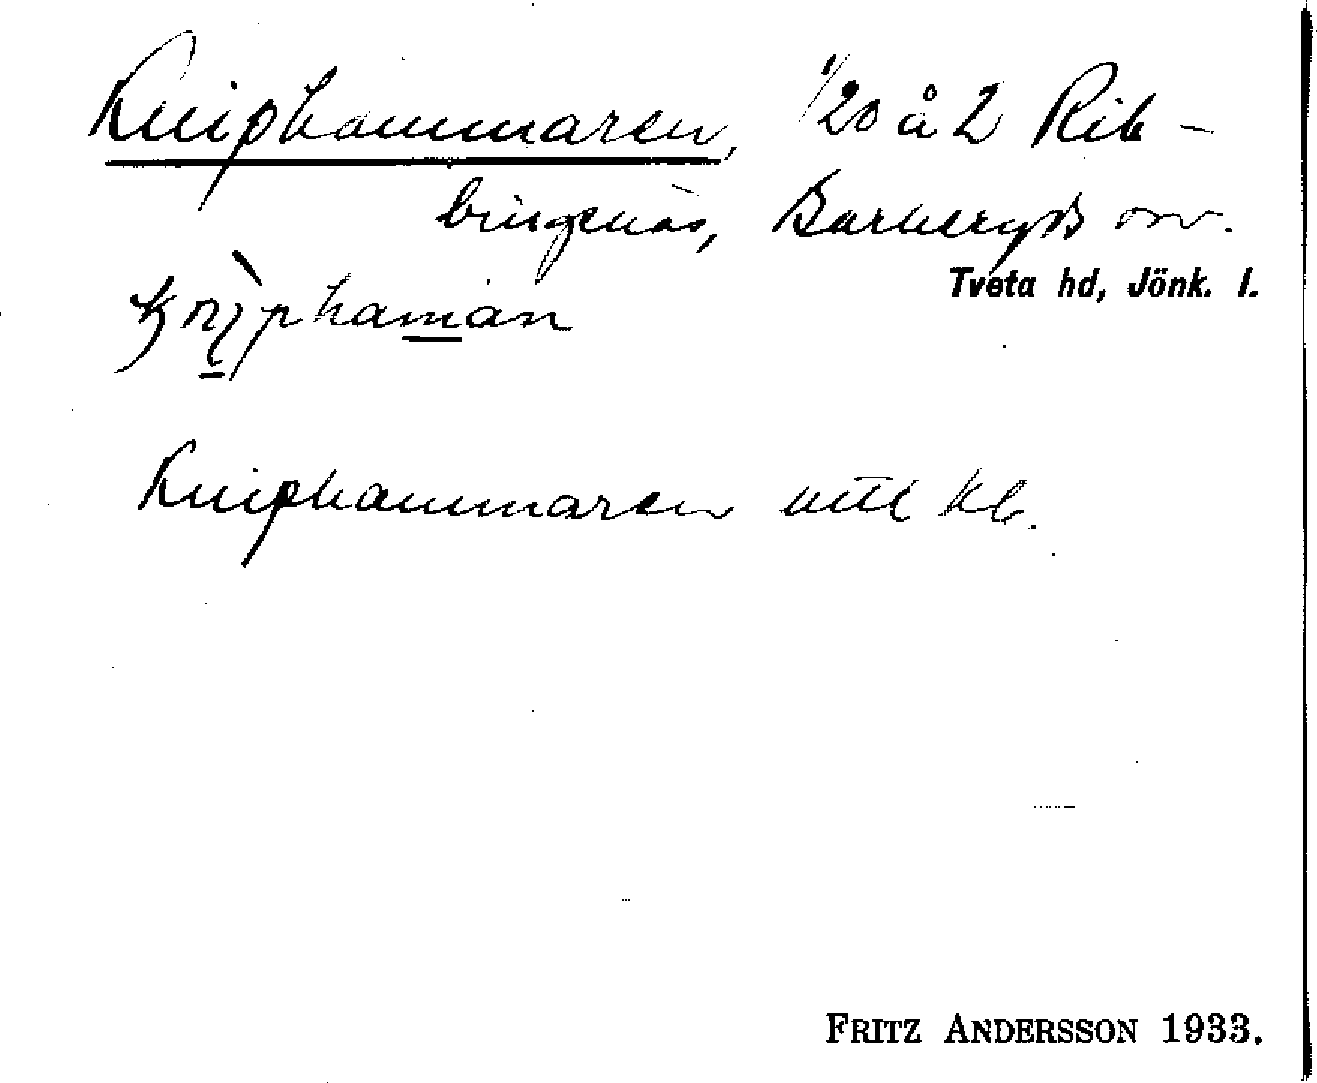 Kniphammaren, 1/20 å 2 Rib-
bingsnäs, Barkeryds sn.
Tveta hd, Jönk. l.
knìphamaṉ
Kniphammaren uttl kb.
FRITZ ANDERSSON 1933.